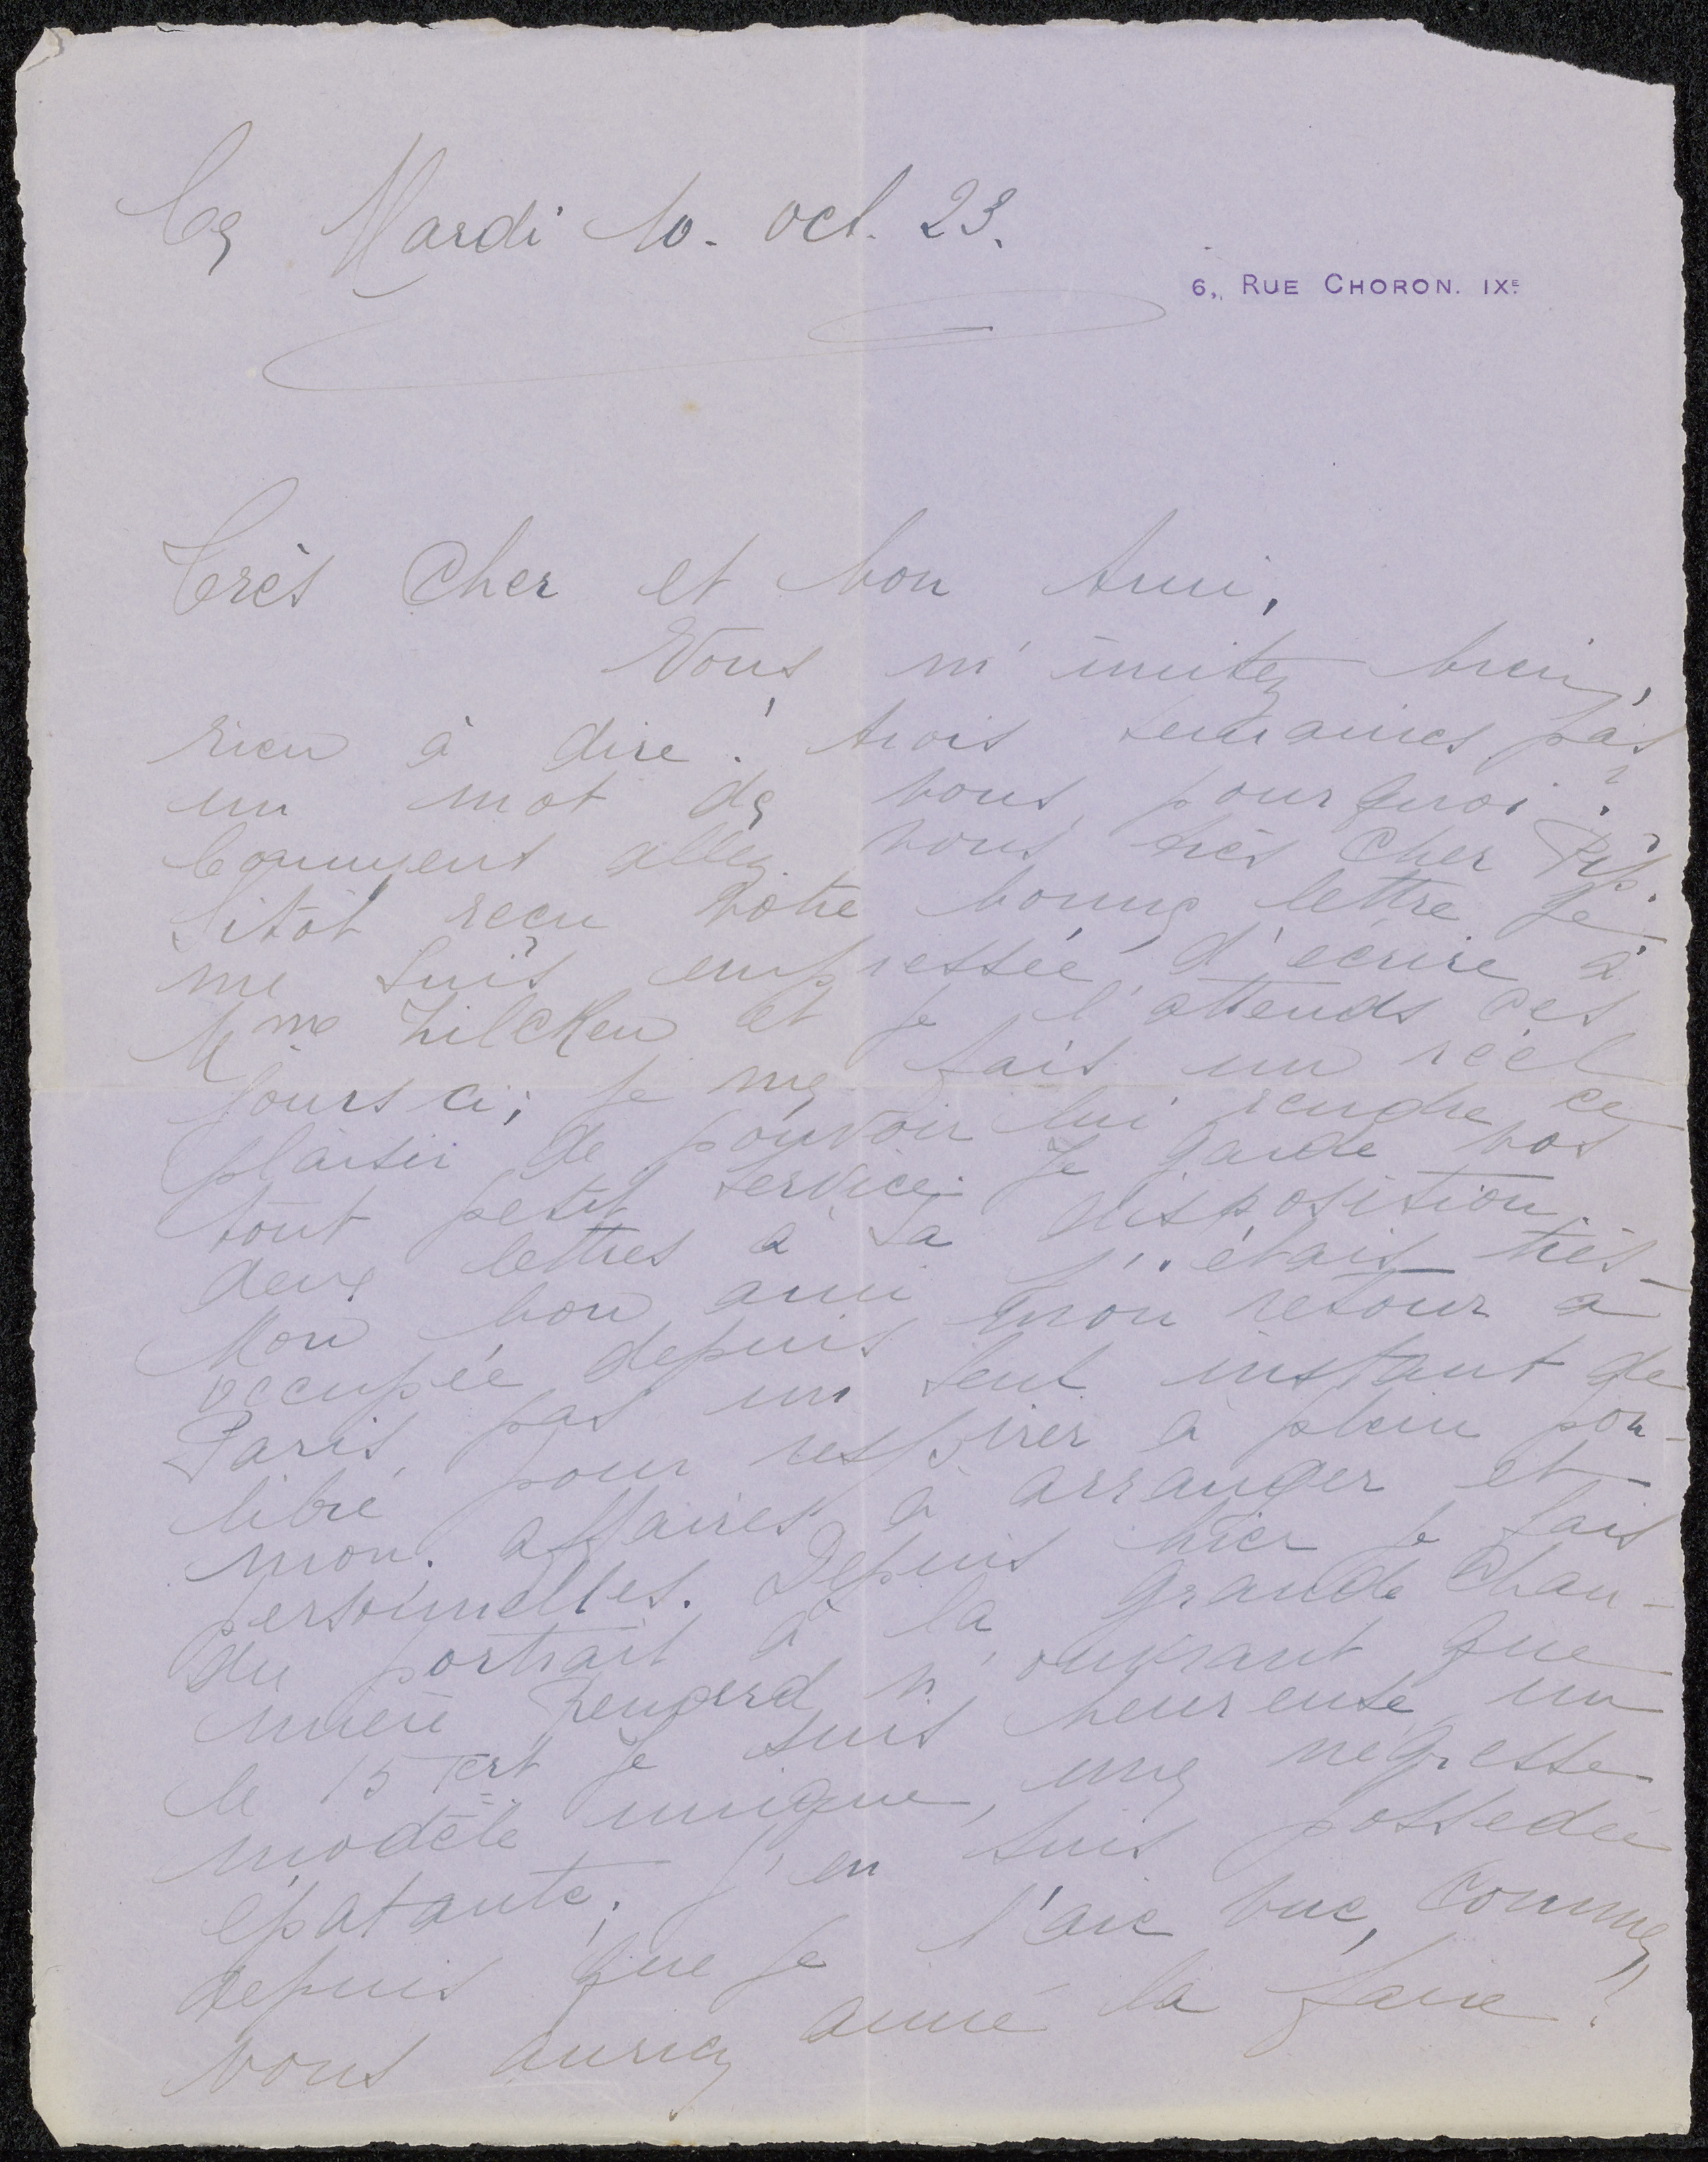 Ce Mardi 10. Oct. 23.
6, RUE CHORON. IXE.
Très Cher et bon Ami,
Vous m'imitez bien,
rien à dire! trois semaines pas
un mot de vous, pourquoi?
Comment allez vous très cher Pip?
Sitôt reçu votre bonne lettre je
me suis empressée d'écrire à
Mme Zilcken et je l'attends ces
jours ci; je me fais un réel
plaisir de pouvoir lui rendre ce
tout petit service. Je garde vos
deux lettres à sa disposition.
Mon bon ami j'étais très
occupée depuis mon retour à
Paris, pas un seul instant de
libre pour respirer à plein pou-
mon. affaires à arranger et
personnelles. Depuis hier je fais
du portrait à la grande Chau-
mière Renard n'ouvrant que
le 15 crt je suis heureuse, un
modèle unique, une négresse
épatante; j'en suis possédée
depuis que je l'aie vue, comme
vous auriez aimé la faire!